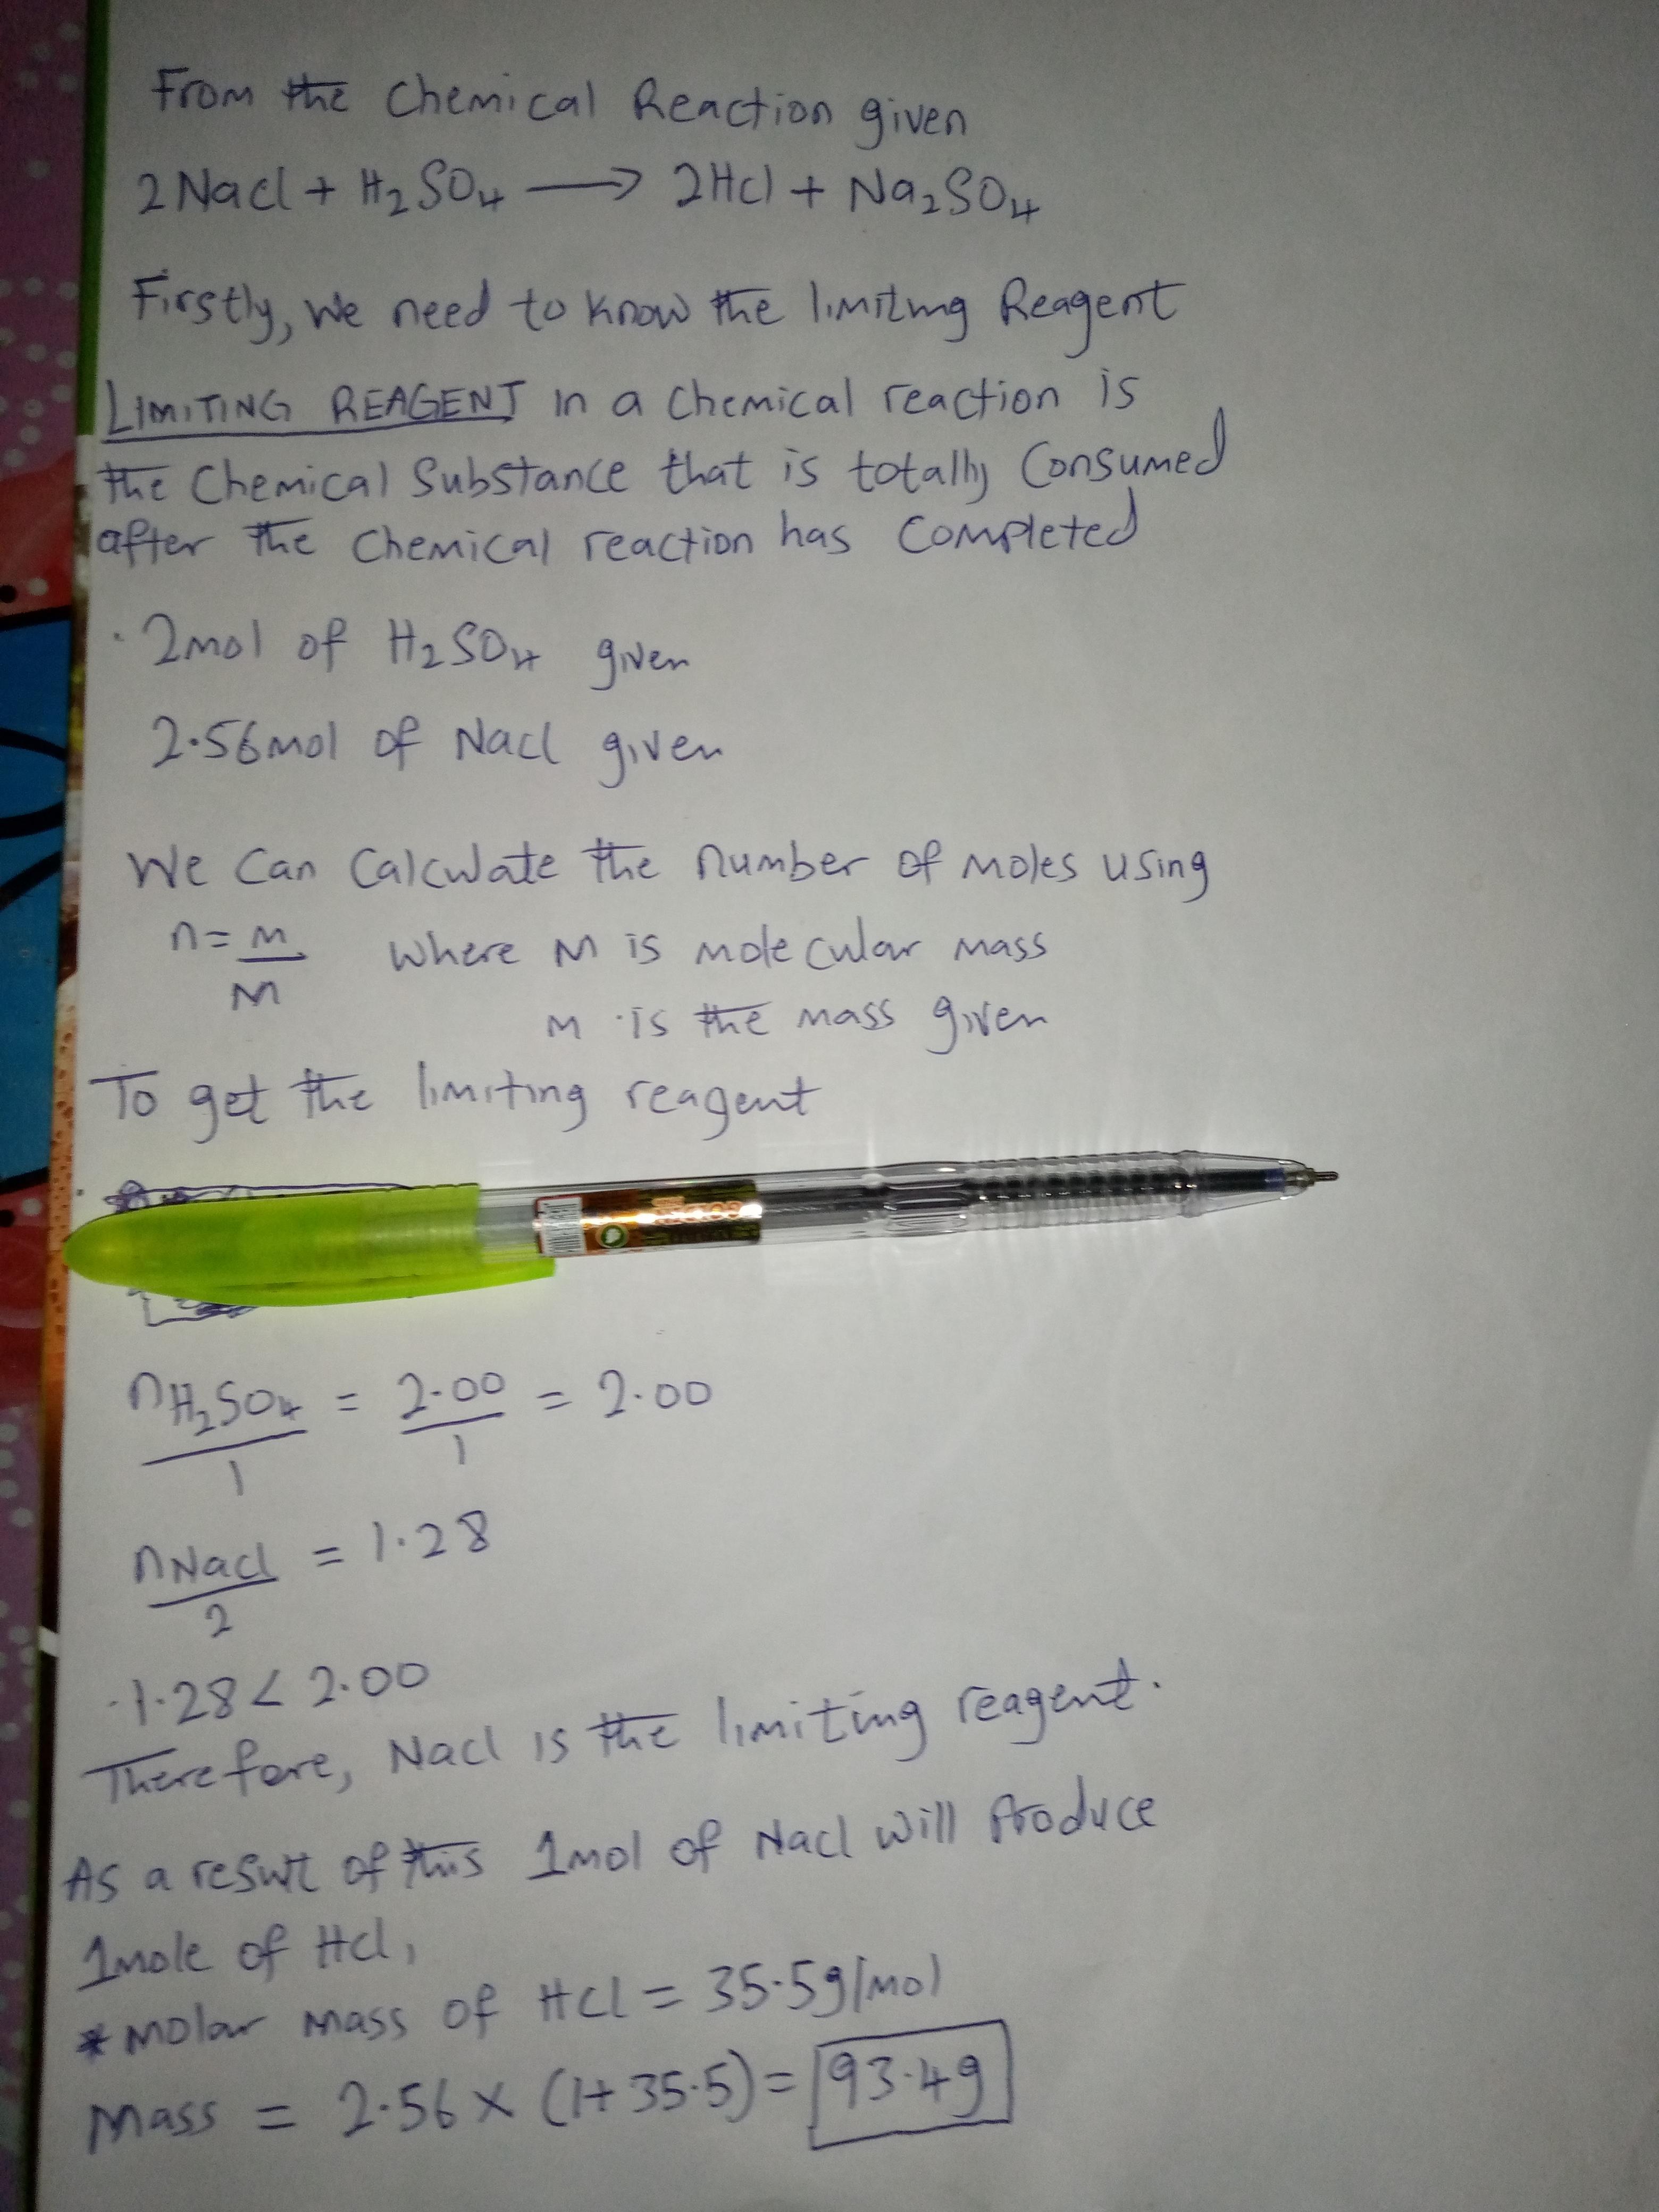 From the Chemical Reaction given
2NaCl + H₂SO₄ ⟶ 2HCl + Na₂SO₄
Firstly, we need to know the limiting Reagent
LIMITING REAGENT in a chemical reaction is
the Chemical Substance that is totally Consumed
after the chemical reaction has completed
· 2mol of H₂SO₄ given
2.56mol of NaCl given
We can calculate the number of moles using
n = m/M where M is molecular mass
m is the mass given
To get the limiting reagent
nH₂SO₄/1 = 2.00/1 = 2.00
nNaCl/2 = 1.28
·1.28 < 2.00
Therefore, NaCl is the limiting reagent.
As a result of this 1mol of NaCl will produce
1mole of HCl,
* molar mass of HCl = 35.5g/mol
Mass = 2.56 × (1+35.5) = 93.4g